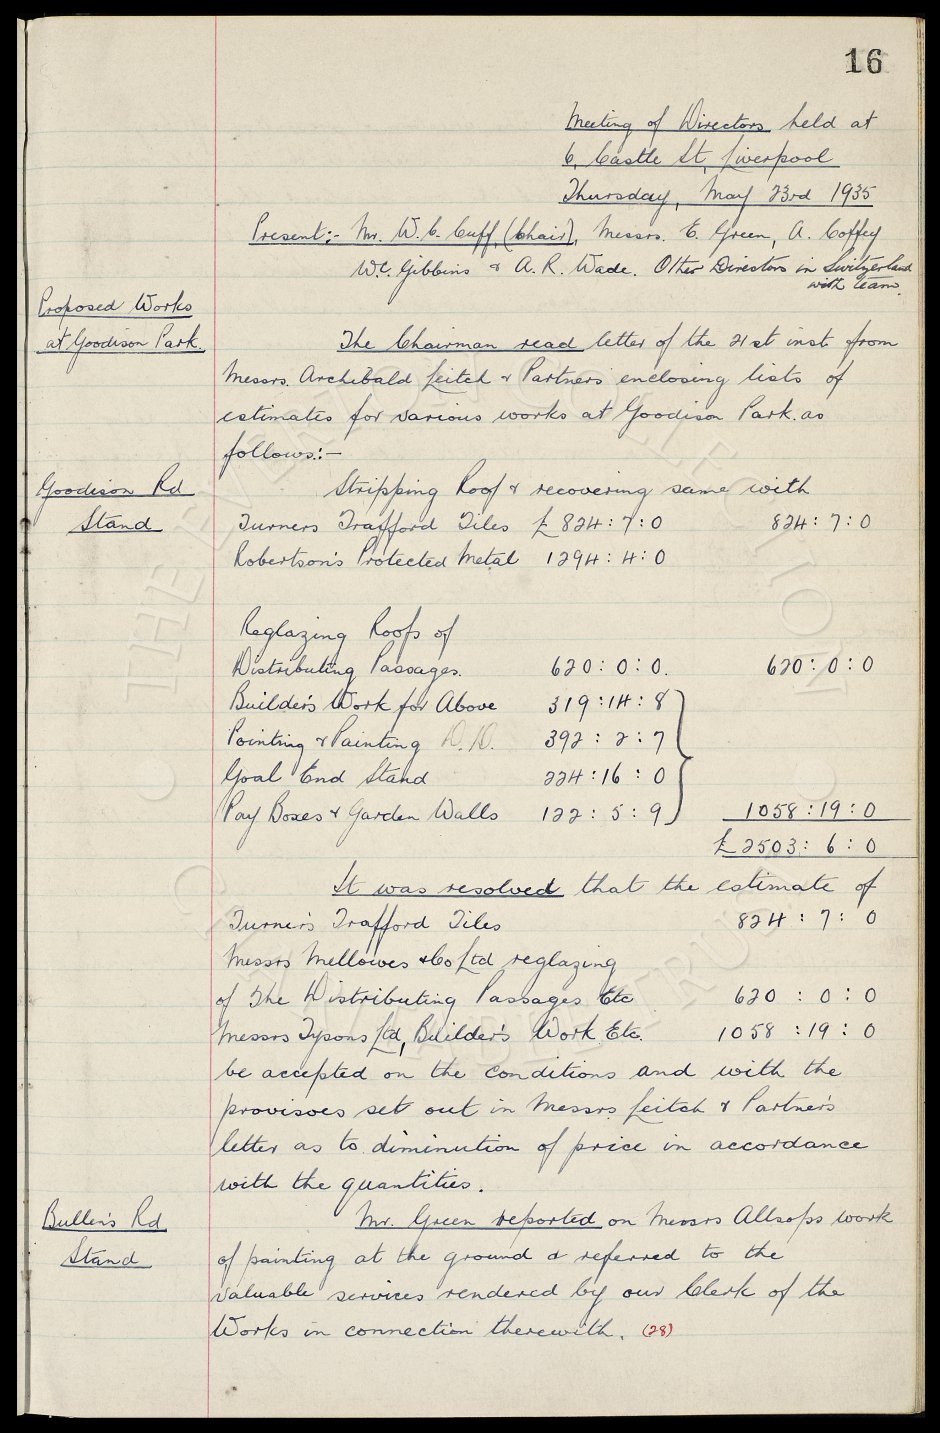 16
Meeting of Directors held at
6, Castle St, Liverpool
Thursday, May 23rd 1935
Present:- Mr. W.C. Cuff, (Chair), Messrs. E. Green, A. Coffey
W.C. Gibbins & A. R. Wade. Other Directors in Switzerland
with team.
Proposed Works
at Goodison Park.
The Chairman read letter of the 21st inst. from
Messrs. Archibald Leitch & Partners enclosing lists of
estimates for various works at Goodison Park. as
follows:-
Goodison Rd
Stand
Stripping Roof & recovering same with
Turners Trafford Tiles £824:7:0 824:7:0
Robertson's Protected Metal 1294:4:0
Reglazing Roofs of
Distributing Passages. 620:0:0. 620:0:0
Builder's Work for Above 319:14:8
Pointing & Painting D.D. 392:2:7
Goal End Stand 224:16:0
Pay Boxes & Garden Walls 122:5:9 1058:19:0
£2503:6:0
It was resolved that the estimate of
Turner's Trafford Tiles 824:7:0
Messrs Mellowes & Co Ltd reglazing
of the Distributing Passages Etc 620:0:0
Messrs Tysons Ltd, Builder's Work Etc. 1058:19:0
be accepted on the conditions and with the
provisoes set out in Messrs Leitch & Partner's
letter as to diminution of price in accordance
with the quantities.
Bullen's Rd
Stand
Mr. Green reported on Messrs Allsops work
of painting at the ground & referred to the
valuable services rendered by our Clerk of the
Works in connection therewith. (28)
THE EVERTON COLLECTION
CHARITABLE TRUST